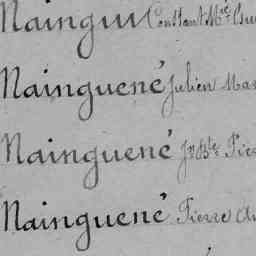 Mainguin Constant Mie
Mainguené Julien
Mainguené Jn Bte
Mainguené Pierre